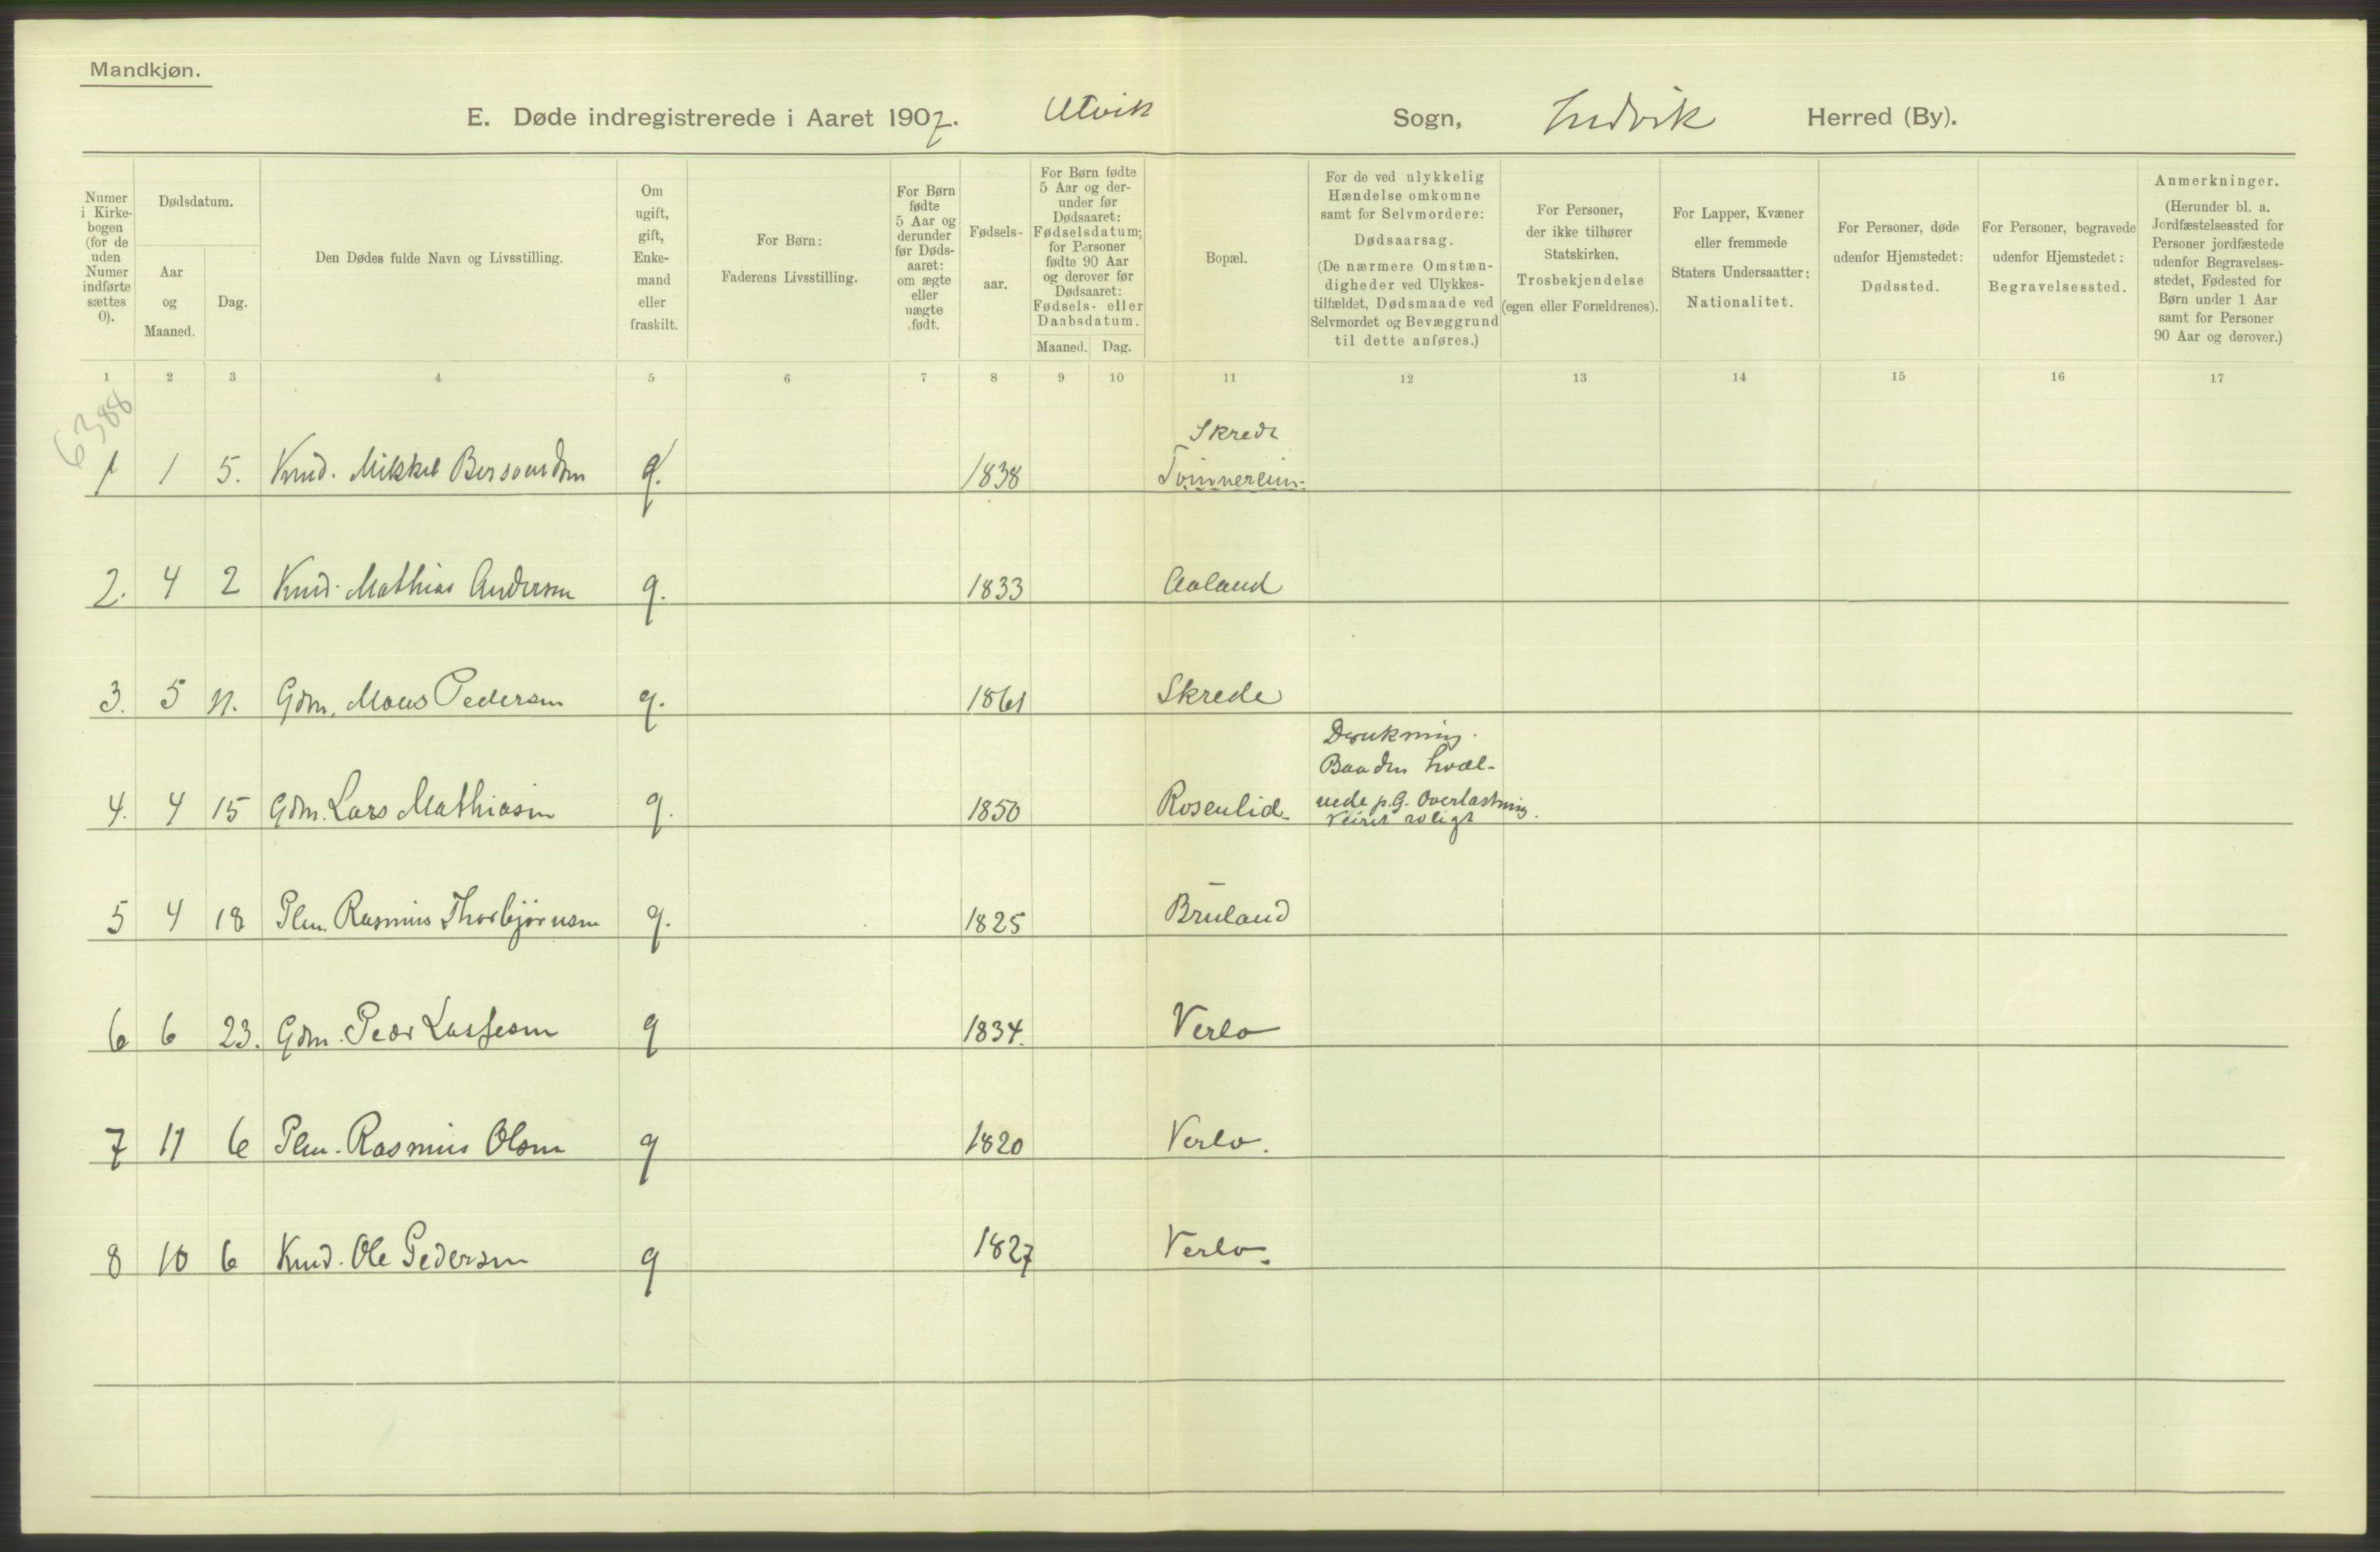 Mandkjøn.
E. Døde indregistrerede i Aaret 1907. Utvik Sogn, Indvik Herred (By).
Numer i Kirkebogen (for de uden Numer indførte sættes 0).
Dødsdatum.
Aar og Maaned.
Dag.
Den Dødes fulde Navn og Livsstilling.
Om ugift, gift, Enkemand eller fraskilt.
For Børn: Faderens Livsstilling.
For Børn fødte 5 Aar og derunder før Dødsaaret: om ægte eller uægte født.
Fødselsaar.
For Børn fødte 5 Aar og derunder før Dødsaaret: Fødselsdatum; for Personer fødte 90 Aar og derover før Dødsaaret: Fødsels- eller Daabsdatum.
Maaned. Dag.
Bopæl.
For de ved ulykkelig Hændelse omkomne samt for Selvmordere: Dødsaarsag. (De nærmere Omstændigheder ved Ulykkestilfældet, Dødsmaade ved Selvmordet og Bevæggrund til dette anføres.)
For Personer, der ikke tilhører Statskirken. Trosbekjendelse (egen eller Forældrenes).
For Lapper, Kvæner eller fremmede Staters Undersaatter: Nationalitet.
For Personer, døde udenfor Hjemstedet: Dødssted.
For Personer, begravede udenfor Hjemstedet: Begravelsessted.
Anmerkninger. (Herunder bl. a. Jordfæstelsessted for Personer jordfæstede udenfor Begravelsesstedet, Fødested for Børn under 1 Aar samt for Personer 90 Aar og derover.)
1 2 3 4 5 6 7 8 9 10 11 12 13 14 15 16 17
6388
Skrede
1 1 5. Kmd. Mikkel g. 1838 Tvinnereim.
2. 4 2 Kmd. Mathias Andersen g. 1833 Aaland
3. 5 11. Gdm. Mons Pedersen g. 1861 Skrede
Drukning.
Baaden hvæl-
4. 4 15 Gdm. Lars Mathiasen g. 1850 Rosenlid. vede p.G. Overlastning.
Veiret roligt
5 4 18 Plm. Rasmus Thorbjørnsen g. 1825 Bruland
6 6 23. Gdm. Peder Lassesen g 1834. Verlo
7 11 6 Plm. Rasmus Olsen g 1820 Verlo.
8 10 6 Kmd. Ole Pedersen g 1827 Verlo.